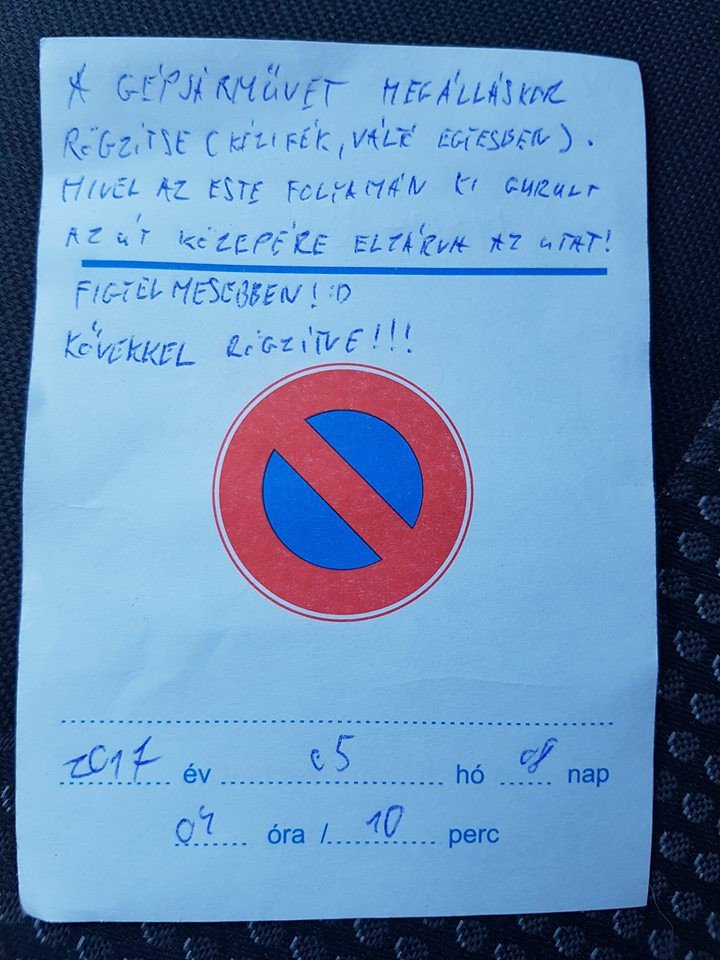 A GÉPJÁRMŰVET MEGÁLLÁSKOR
RÖGZÍTSE (KÉZIFÉK, VÁLTÓ EGYESBEN).
MIVEL AZ ESTE FOLYAMÁN KI GURULT
AZ ÚT KÖZEPÉRE ELZÁRVA AZ UTAT!
FIGYELMESEBBEN! :D
KÖVEKKEL RÖGZÍTVE!!!
2017 év 05 hó 08 nap
04 óra / 10 perc